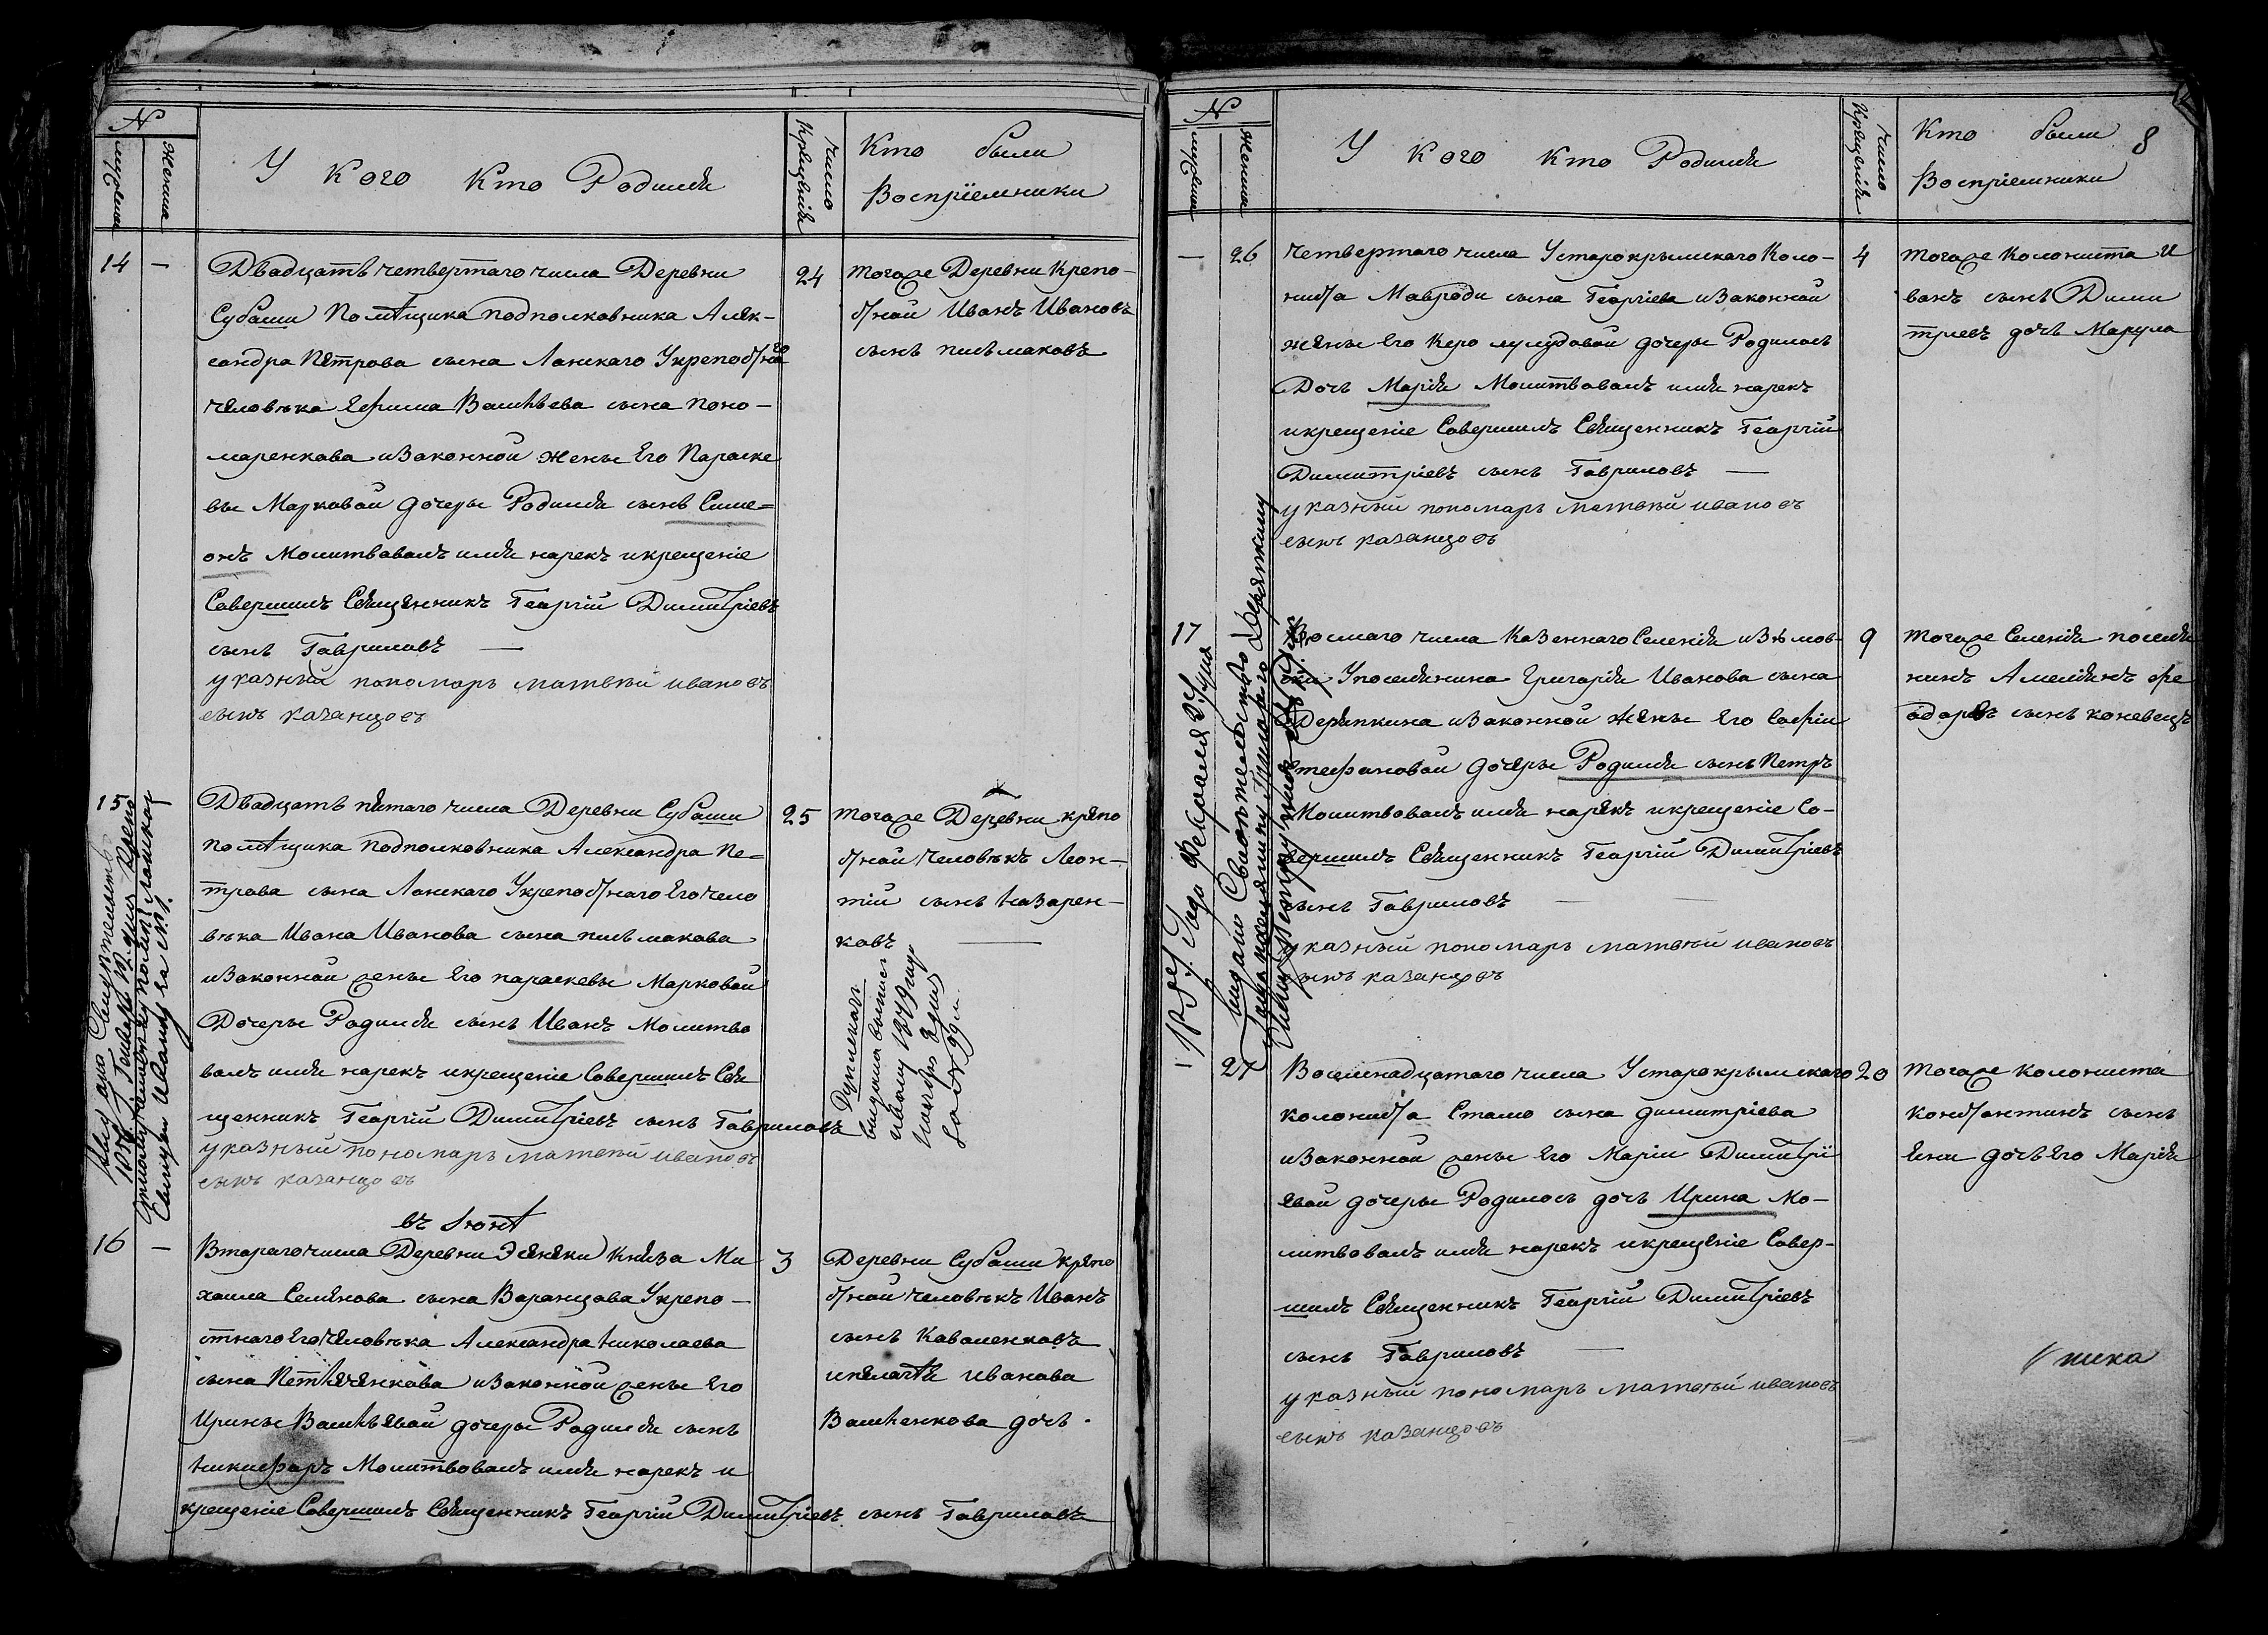 №
мужеска
женска
У кого Кто Родился
число
крещенія
Кто были
Воспріемники
14 —
Двадцать четвертаго числа Деревни
Субаши Помѣщика подполковника Алек-
сандра Петрова сына Ланскаго Укрепостнаго
человѣка Ефима Васильева сына поно-
маренкава изаконной жены Его Параске
вы Марковой дочеры Родился сынъ Симе=
онъ Молитвовалъ имя нарекъ икрещеніе
Савершилъ Священникъ Георгій Димитріевъ
сынъ Гавриловъ —
указный пономарь матвѣй ивановъ
сынъ казанцовъ
24
тогоже Деревни Крепо-
стной Иванъ Ивановъ
сынъ писмаковъ
15
Двадцать пятаго числа Деревни Субаши
помѣщика подполковника Александра Пе=
трова сына Ланскаго Укрепостнаго Его чело
вѣка Ивана Иванова сына писмакава
изаконной жены Его параскевы Марковой
Дочеры Родился сынъ Иванъ Молитво
валъ имя нарекъ икрещеніе Совершилъ Свя
щенникъ Георгій Димитріевъ сынъ Гавриловъ
указный пономарь матвѣй ивановъ
сынъ казанцовъ
25
тогоже Деревни крепо
стной человѣкъ Леон-
тій сынъ Назарен-
ковъ
Дупликатъ
1879
въ Іюнѣ
16 —
Втораго числа Деревни Князя Ми
хаила Семенова сына Варанцова Укрепо-
стнаго Его человѣка Александра Николаева
сына изаконной жены Его
Ирины Васильевой дочеры Родился сынъ
Никифаръ Молитвовалъ имя нарекъ и
крещеніе Савершилъ Священникъ Георгій Димитріевъ сынъ Гавриловъ
3
Деревни Субаши крепо
стной человѣкъ Иванъ
сынъ Каваленковъ
ипелагѣя иванова
Василенкова дочь.
№
мужеска
женска
У кого Кто Родился
число
крещенія
Кто были 8
Воспріемники
— 26
четвертаго числа Устарокрымскаго Коло-
ниста Мавроди сына Георгіева изаконной
жены Его Керо дочеры Родилась
Дочь Марія Молитвовалъ имя нарекъ
икрещеніе Савершилъ Священникъ Георгій
Димитріевъ сынъ Гавриловъ —
указный пономарь матвѣй ивановъ
сынъ казанцовъ
4
тогоже Колониста И
ванъ сынъ Дими
тріевъ дочь Марула
17
Восмаго числа Казеннаго Селенія изюмов-
ки Упоселянина Григорія Иванова сына
Дерепкина изаконной жены Его Софіи
Стефановой дочеры Родился сынъ Петръ
Молитвовалъ имя нарекъ икрещеніе Со-
вершилъ Священникъ Георгій Димитріевъ
сынъ Гавриловъ
указный пономарь матвѣй ивановъ
сынъ казанцовъ
9
тогоже Селенія поселя
нинъ Амелянъ фе
одоровъ сынъ коневецъ
27
Восемнадцатаго числа Устарокрымскаго
колониста Стамо сына димитріева
изаконной жены Его Маріи Димитрі
евой дочеры Родилось дочь Ирина Мо-
литвовалъ имя нарекъ икрещеніе Савер-
шилъ Священникъ Георгій Димитріевъ
сынъ Гавриловъ
указный пономарь матвѣй ивановъ
сынъ казанцовъ
20
тогоже колониста
константинъ сынъ
Яни дочь Его Марія